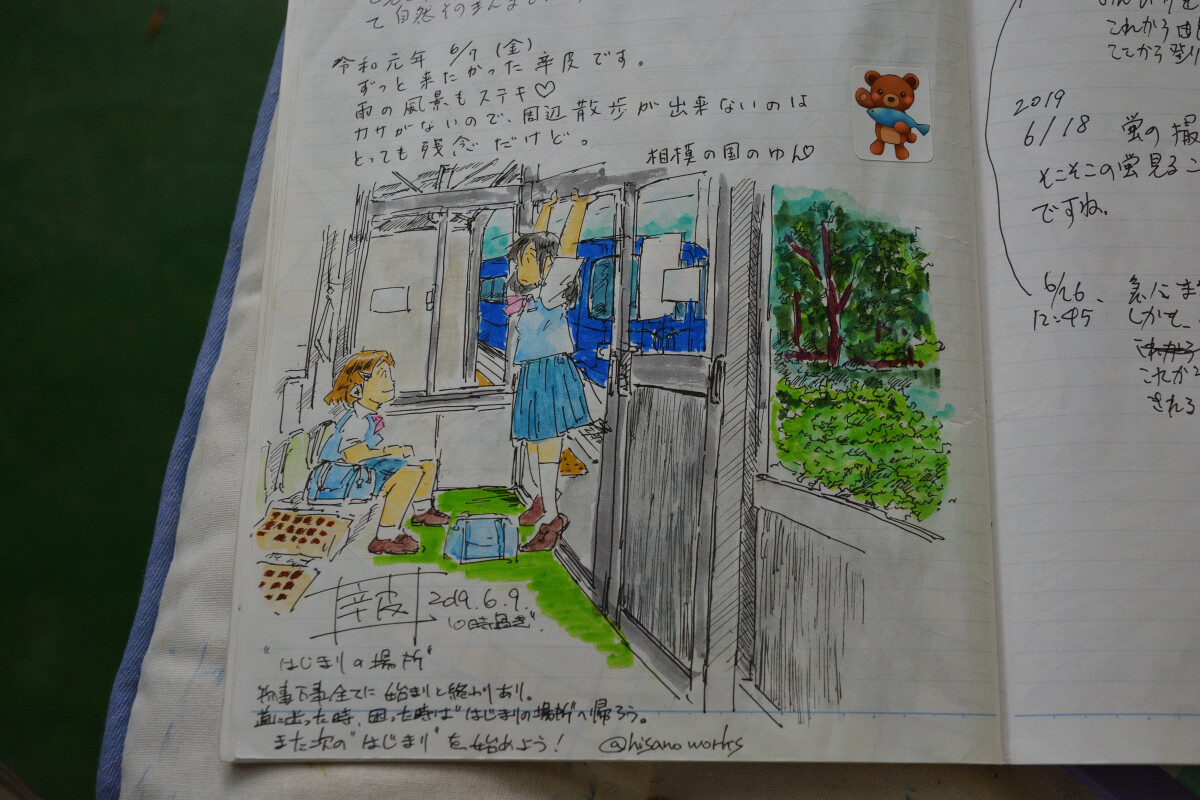 て自然そのまんま
令和元年 6/7 (金)
ずっと来たかった辛皮です。
雨の風景もステキ♡
カサがないので、周辺散歩が出来ないのは
とっても残念だけど。
相模の国のゆん♡
辛皮 2019.6.9.
10時過ぎ
"はじまりの場所"
物事万事全てに始まりと終わりあり。
道に迷った時、困った時は"はじまりの場所"へ帰ろう。
また次の"はじまり"を始めよう！ @hisano works
これから
ここから登り
2019
6/18 蛍の撮
そこそこの蛍見るこ
ですね。
6/26. 急にま
12:45 しかも、
これから
これが
される